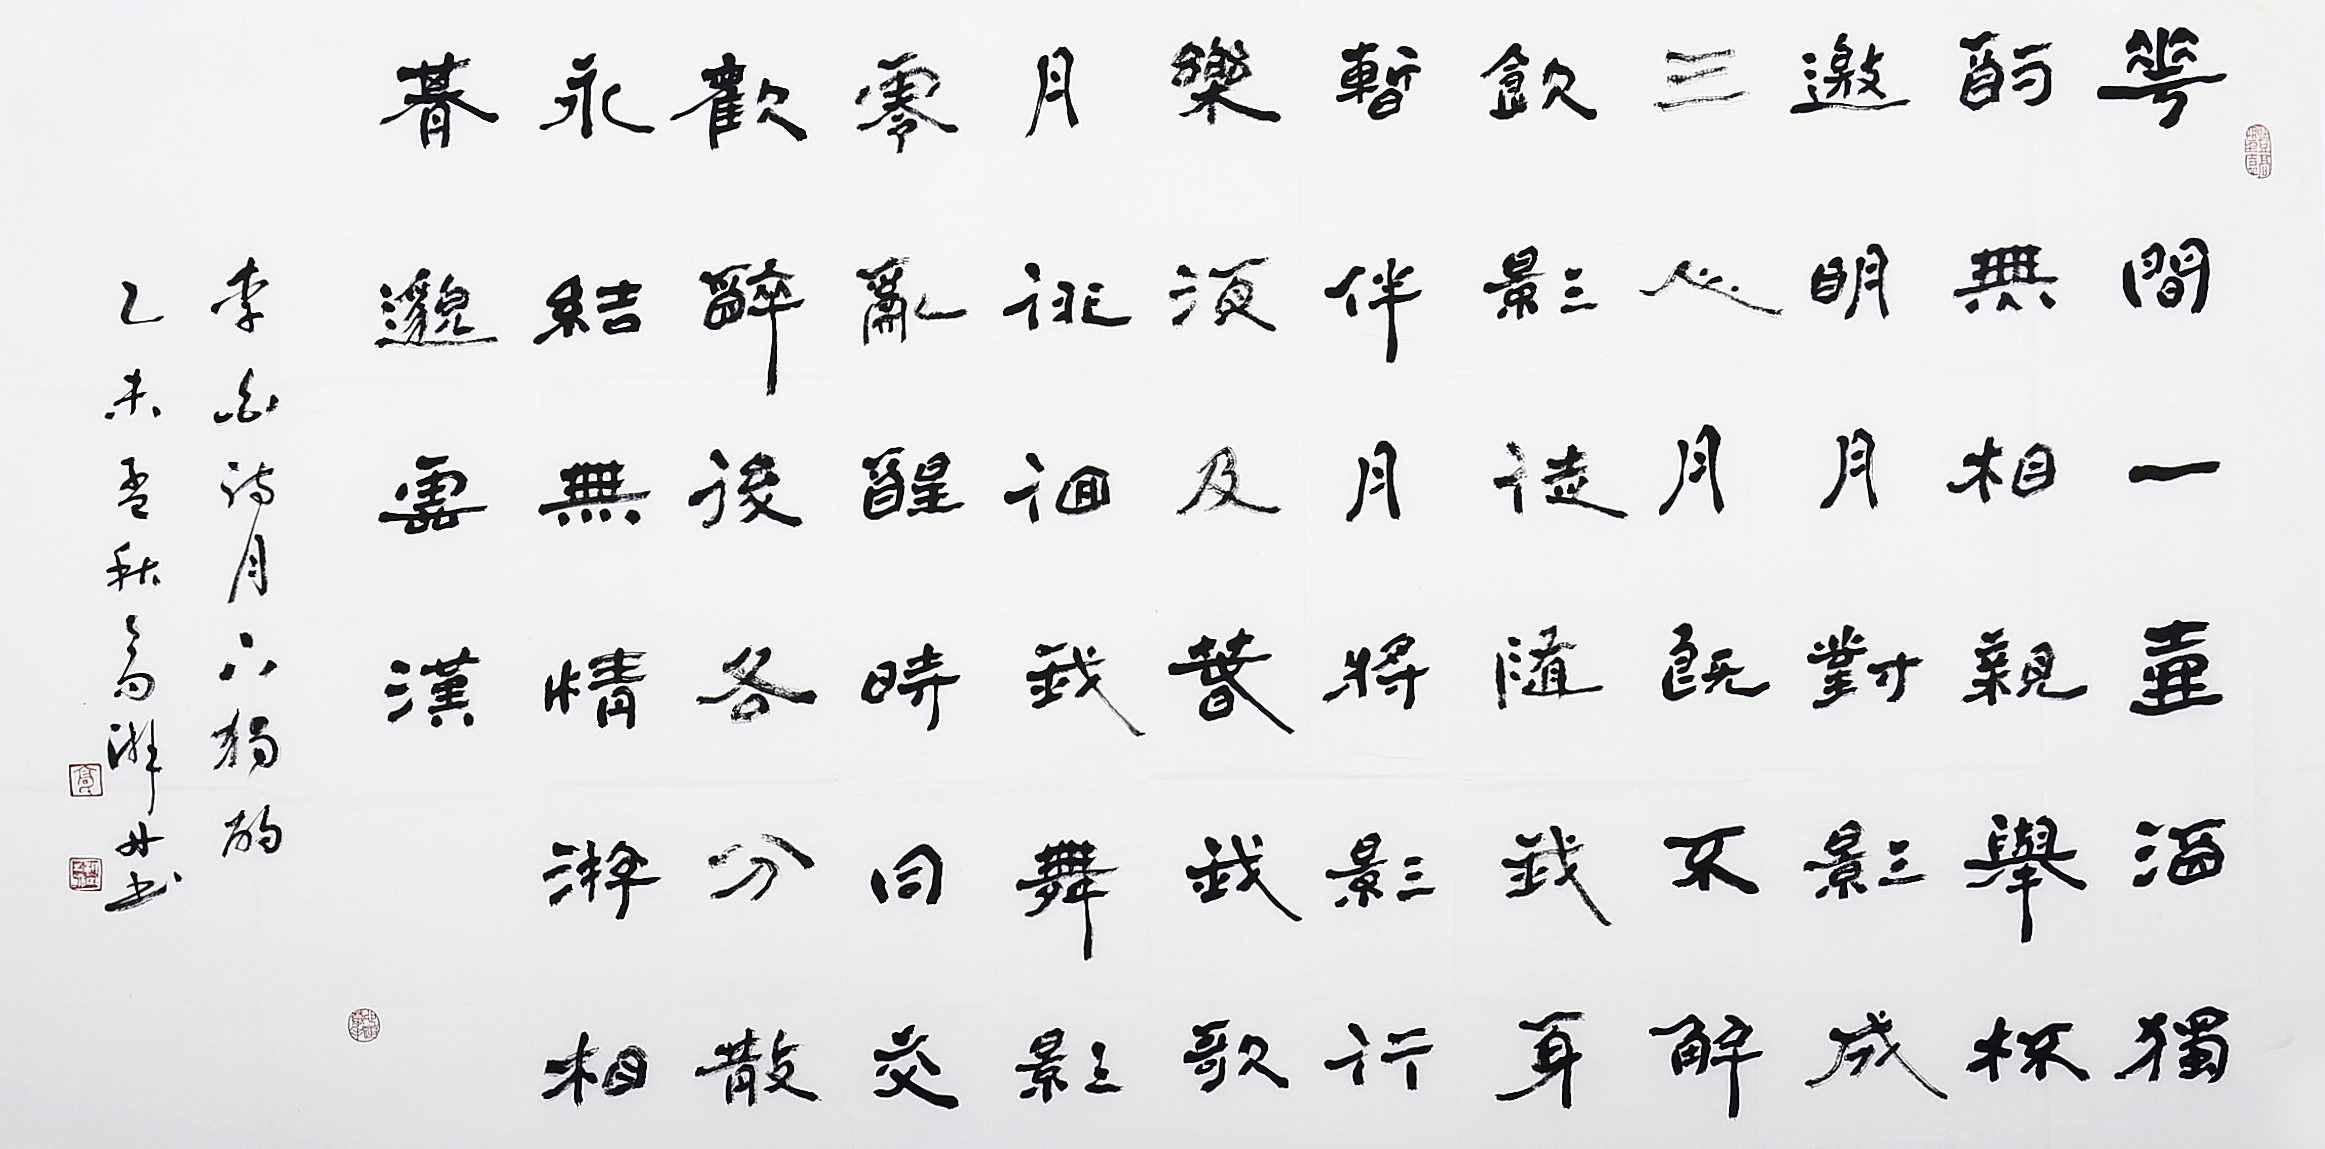 華間一壺酒獨
酌無相親舉杯
邀明月對影成
三人月既不解
飲影徒隨我身
暫伴月將影行
樂須及春我歌
月徘徊我舞影
零亂醒時同交
歡醉後各分散
永結無情游相
朞邈雲漢
李白詩月下獨酌
乙未孟秋高書